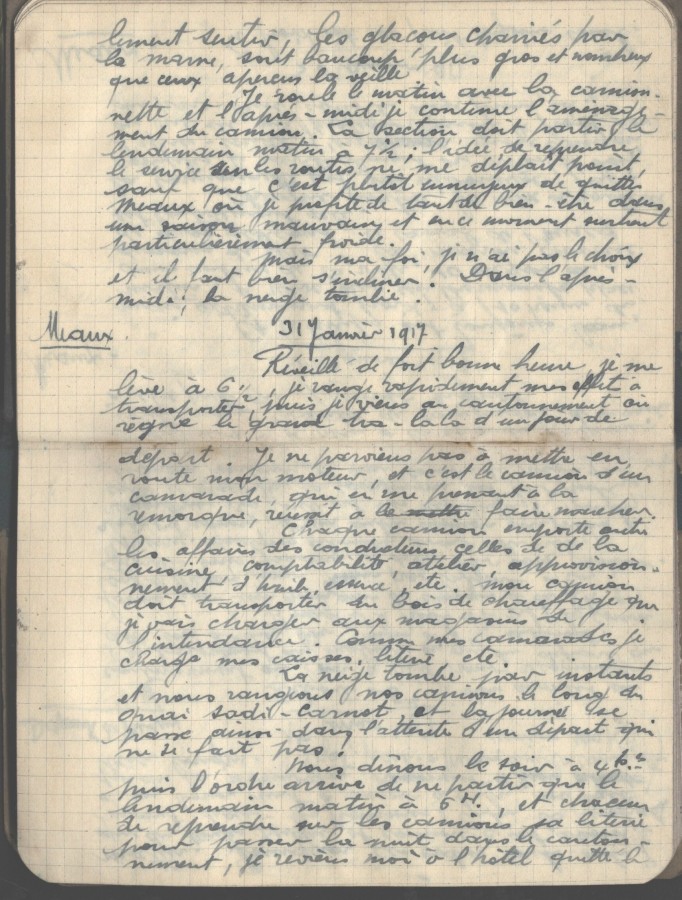 lement sentir, les glaçons charriés par
la marne, sont beaucoup plus gros et nombreux
que ceux aperçus la veille.
Je roule le matin avec la camion-
nette et l'après-midi je continue l'aménage-
ment du camion. La section doit partir le
lendemain matin à 7½; l'idée de reprendre
le service sur les routes ne me déplait point,
sauf que c'est plutôt ennuyeux de quitter
Meaux où je profite de tant de bien-être dans
une saison mauvaise et en ce moment surtout
particulièrement froide.
Mais ma foi, je n'ai pas le choix
et il faut bien s'incliner. Dans l'après-
midi, la neige tombe.
Meaux. 31 Janvier 1917
Réveillé de fort bonne heure, je me
lève à 6½, je range rapidement mes effets à
transporter, puis je viens au cantonnement où
règne le grand tra-la-la d'un jour de
départ. Je ne parviens pas à mettre en
route mon moteur, et c'est le camion d'un
camarade, qui en me prenant à la
remorque, réussit à le mettre faire marcher.
Chaque camion emporte outre
les affaires des conducteurs celles de de la
cuisine, comptabilité, atelier, approvision-
nement d'huile, essence, etc. mon camion
doit transporter du bois de chauffage que
je vais charger aux magasins de
l'intendance. Comme mes camarades je
charge mes caisses, literie etc.
La neige tombe par instants
et nous rangeons nos camions le long du
quai Sadi-Carnot, et la journée se
passe ainsi dans l'attente d'un départ qui
ne se fait pas.
Nous dînons le soir à 4h.½
puis l'ordre arrive de ne partir que le
lendemain matin à 6H, et chacun
de reprendre sur les camions sa literie
pour passer la nuit dans le canton-
nement, je reviens moi à l'hôtel quitté le